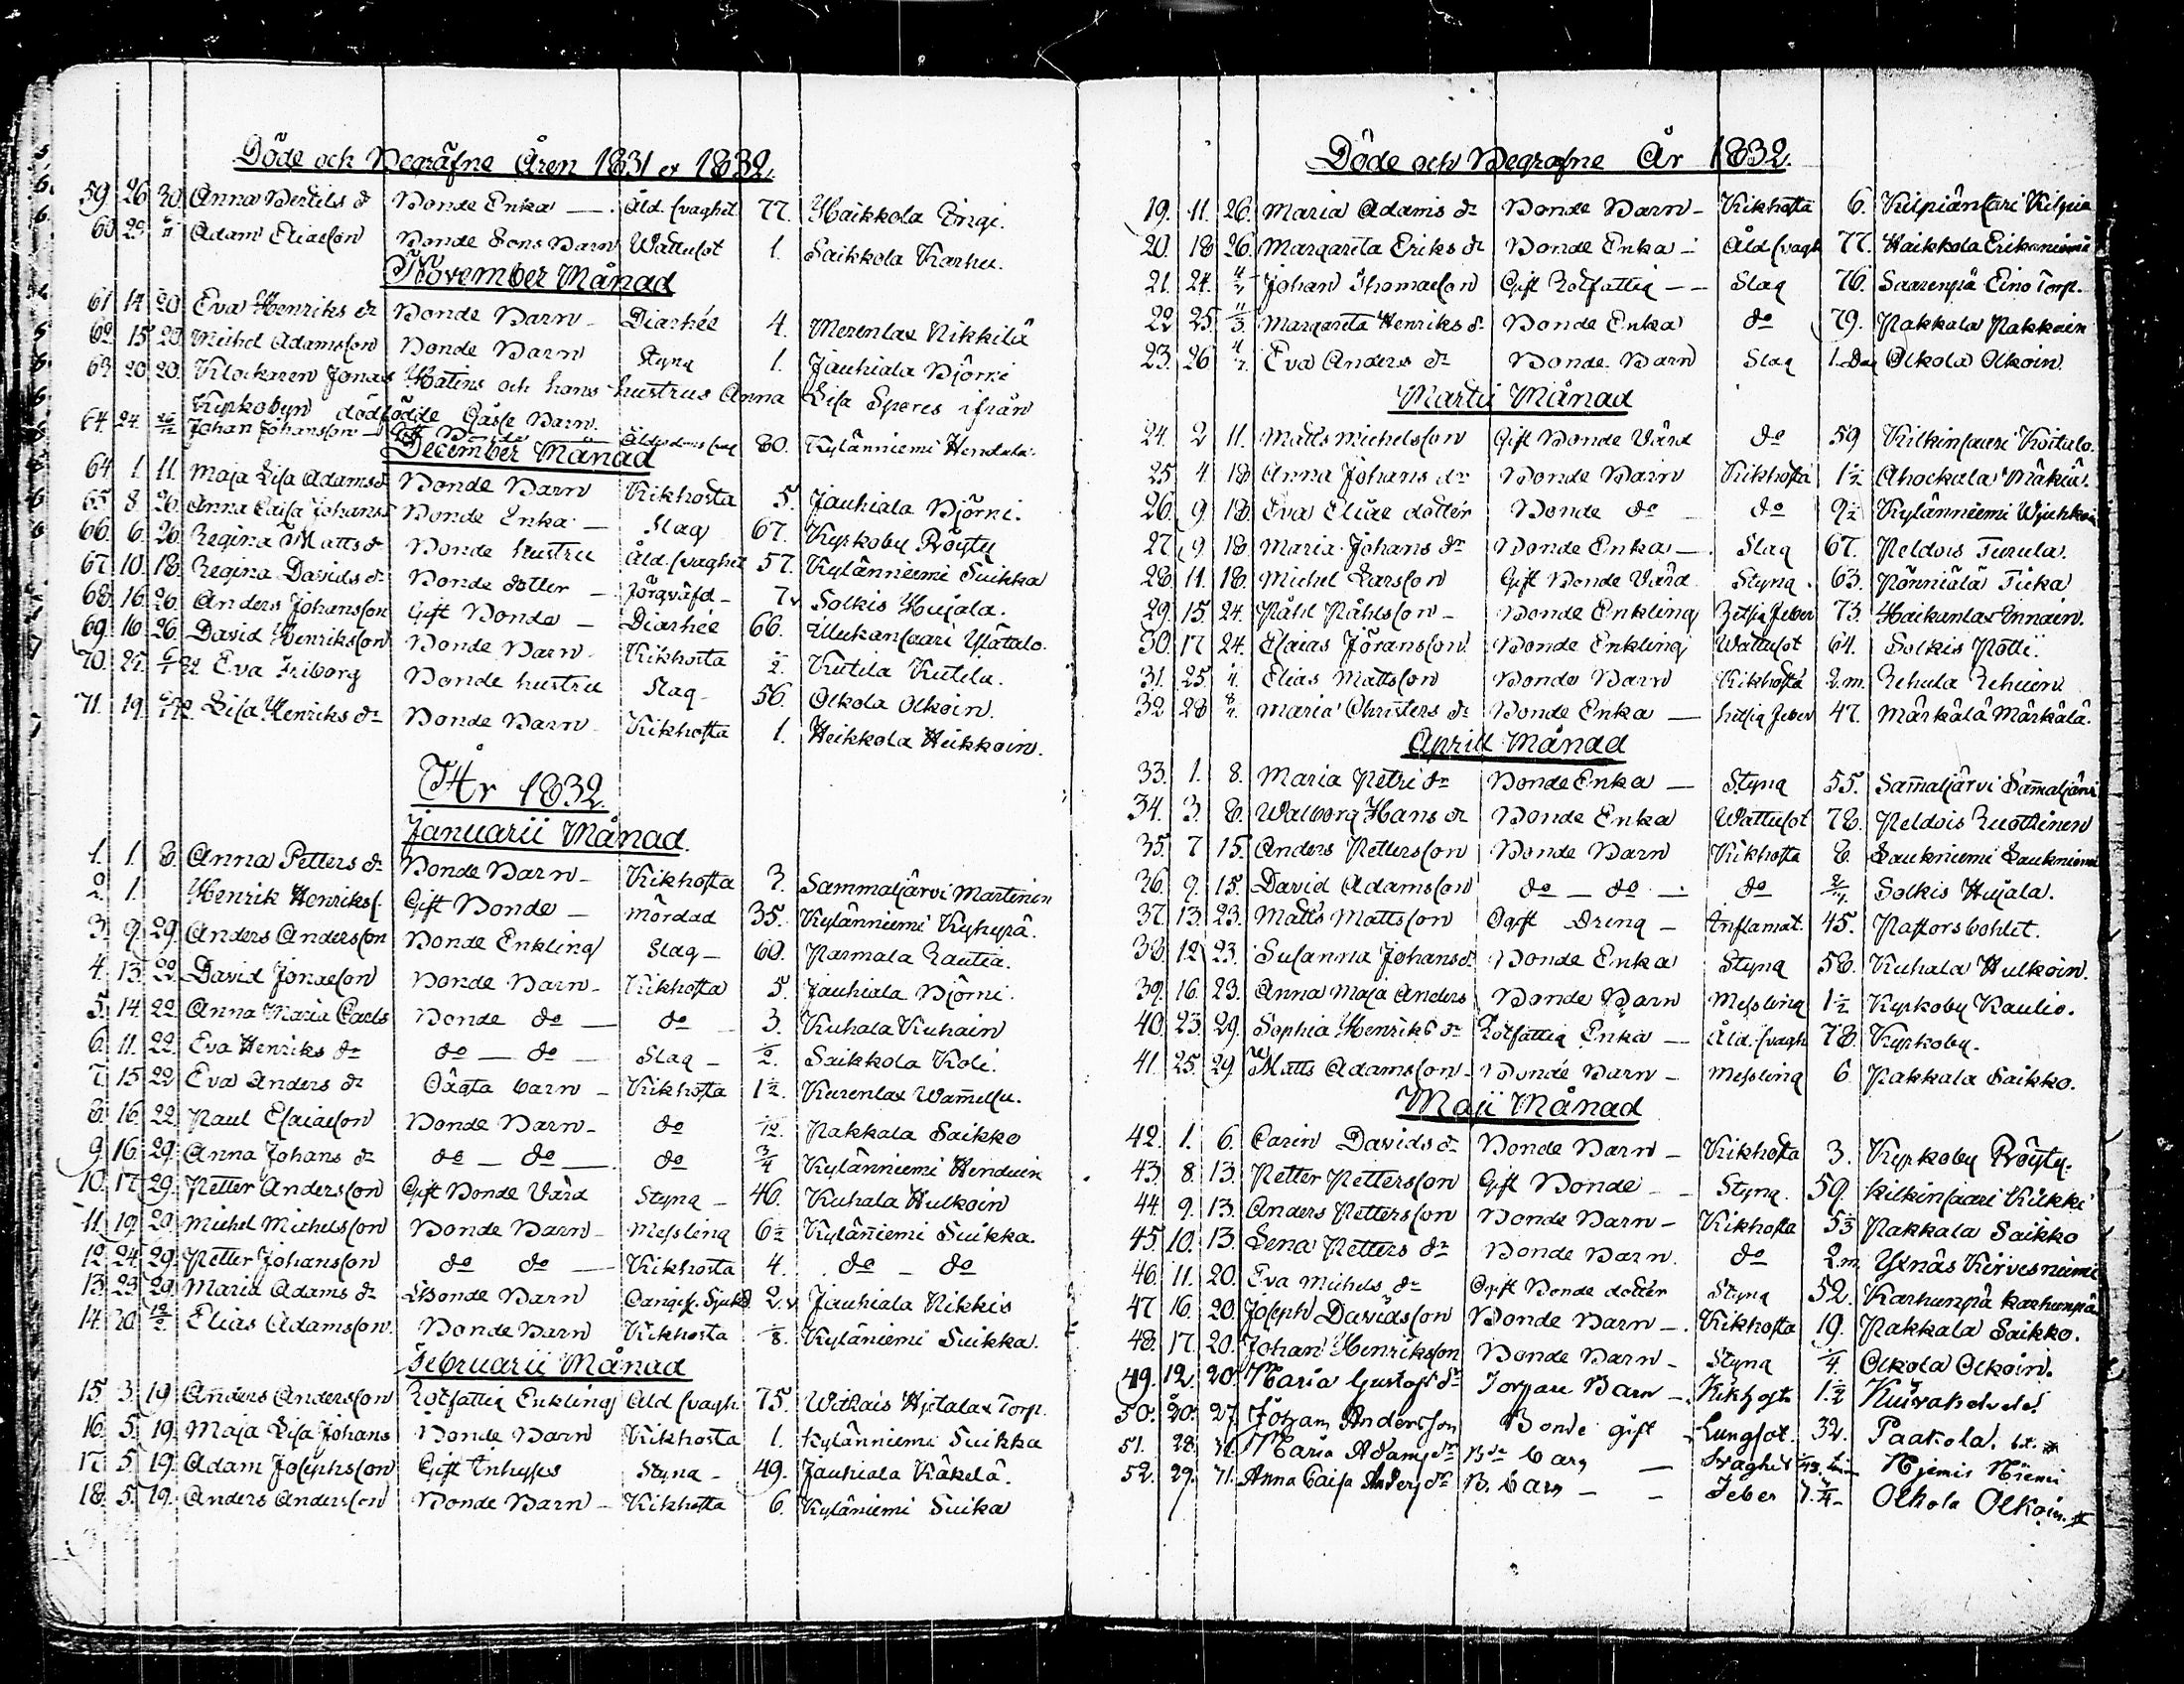 Döde och Begrafne Åren 1831 et 1832.
59. 26 30. Anna Bertils dr Bonde Enka —. Åld. svaghet 77. Haikkola Inngi.
60 29 6/11 Adam Eliasson Bonde Sons Barn Wattusot 1. Saikkola Karhu.
November Månad
61 14 20 Eva Henriks dr Bonde Barn - Diarhée 4. Merenlax Nikkilä
62. 15 20. Michel Adamsson Bonde Barn Styng 1. Jauhiala Björni
63 20 20. Klockaren Jonas Hatins och hans hustrus Anna Lisa Speres ifrån
Kyrkobyn dödfödde Gåsse Barn.
64. 24. 26/12 Johan Johansson — Gift Bonde 80. Kylänniemi Hendula.
December Månad
64 1 11. Maja Lisa Adamsd. Bonde Barn Kikhosta 5. Jauhiala Björni.
65 8 26. Anna Caisa Johansd. Bonde Enka — Slag 67. Kyrkoby Pröyty
66 6. 26 Regina Mattsd. Bonde hustru Åld. svaghet 57. Kylänniemi Suikka
67. 10. 18. Regina Davids dr Bonde dotter — 7 Solkis Hujala.
68. 16 26. Anders Johansson Gift Bonde — Diarhée 66. Ulukansaari Ylätalo.
69. 16 26. David Henriksson Bonde Barn - Kikhosta 1/2. Kutila Kutila.
70. 27. Eva Friborg Bonde hustru Slag - 56. Olkola Olkoin.
71. 19. Lisa Henriks dr Bonde Barn Kikhosta 1. Heikkola Heikkoin.
År 1832.
Januarii Månad.
1. 1. 8. Anna Petters dr Bonde Barn - Kikhosta 3. Sammaljärvi Martinin
2. 1. Henrik Henrikss. Gift Bonde — mördad 35. Kylänniemi Kyhyrä.
3. 9. 29. Anders Andersson Bonde Enkling Slag - 60. Parmala Rautia.
4. 13. 22 David Jonasson Bonde Barn - Kikhosta 5. Jauhiala Björni.
5. 14. 22. Anna Maria Carls Bonde do — do — 3. Kuhala Kuhain
6. 11. 22. Eva Henriks dr do — do — Slag - 1/2. Saikkola Koli.
7. 15 22 Eva Anders dr Oägta barn - Kikhosta 1 1/2. Kurenlax Wammelsu.
8. 16. 22. Paul Esaiasson Bonde Barn - do 1/12. Pakkala Saikko
9. 16. 29. Anna Johans dr do — do — do 3/4 Kylänniemi Henduin
10. 17 29. Petter Andersson Gift Bonde Värd Styng - 46. Kuhala Hulkoin
11. 19. 29. Michel Michelsson Bonde Barn - Messling 6 1/2 Kyläniemi Suikka.
12 24 29. Petter Johansson do do — Kikhosta 4. do — do
13. 23 29. Maria Adams dr Bonde Barn 2.v Jauhiala Nikkis
14. 20 12/2. Elias Adamsson. Bonde Barn Kikhosta 1/8. Kyläniemi Suikka.
Februarii Månad
15. 3. 19 Anders Andersson Rotfattig Enkling Åld svagh. 75. Withais Hietalax Torp.
16. 5. 19. Maja Lisa Johans Bonde Barn Kikhosta 1. Kylänniemi Suikka
17. 5. 19. Adam Josephsson Gift Inhyses Styng - 49. Jauhiala Käkelä.
18. 5. 19. Anders Andersson Bonde Barn - Kikhosta 6. Kyläniemi Suika
Döde och Begrafne År 1832.
19. 11. 26. Maria Adams dr Bonde Barn - Kikhosta 6. Kilpiänsari Kilpia
20. 18 26. Margareta Eriks dr Bonde Enka - Åld svagh 77. Haikkola Erikainimi
21. 24. Johan Thomasson Gift Rotfattig — Slag 76. Saarenpä Eino Torp.
22 25. 11/3. Margareta Henriks d. Bonde Enka do 79. Pakkala Pakkain
23. 26 Eva Anders dr Bonde Barn Slag 1. Dag Olkola Olkoin.
Martii Månad
24. 2 11. Matts Michelsson Gift Bonde Värd do 59 Kilkinsaari Koitalo.
25 4. 18 Anna Johans dr Bonde Barn Kikhosta 1 1/2 Ahockala Mäkiä.
26. 9. 18. Eva Eliae dotter Bonde do — do 9 1/2 Kylänniemi
27. 9. 18 Maria Johans dr Bonde Enka —. Slag 67. Peldois Turula.
28 11. 18. Michel Larsson Gift Bonde Värd. Styng. 63. Pönniälä Ticka
29. 15. 24. Påhl Påhlsson - Bonde Enkling Hetsig Feber 73. Haikanlax Ennain.
30. 17 24. Esaias Göransson. Bonde Enkling Wattusot 64. Solkis Pötti.
31. 25 Elias Mattsson Bonde Barn Kikhosta 2.m. Rehula Rehuieni
32 28 Maria Christers dr Bonde Enka — hetsig Feber 47. Märkälä Märkälä.
Aprill Månad
33. 1. 8. Maria Petri dr Bonde Enka — Styng 55. Sammaljärvi Sammaljärvi
34. 3. 8. Walborg Hans dr Bonde Enka Wattusot 78. Peldois Ruothinen
35. 7 15. Anders Pettersson Bonde Barn Kikhosta 8. Laukniemi Laukniemi
36. 9. 15. David Adamsson do — do —. do Solkis Hujala.
37. 13. 23. Matts Mattsson Ogift Dreng — Inflamat. 45. Pastorsbohlet.
38. 12 23. Susanna Johansd. Bonde Enka Styng 58. Kuhala Hulkoin.
39. 16. 23. Anna Maja Anders Bonde Barn Messling 1 1/2 Kyrkoby Kaulio.
40. 23. 29. Sophia Henriks dr Rotfattig Enka — Åld. svagh 78. Kyrkoby.
41. 25. 29 Matts Adamsson - Bonde Barn — Messling 6. Pakkala Saikko.
Maji Månad
42. 1. 6. Carin Davids dr Bonde Barn - Kikhosta 3. Kyrkoby Pröyty.
43. 8. 13. Petter Pettersson Gift Bonde — Styng. 59. Kilkinsaari Kilkki
44. 9. 13. Anders Pettersson Bonde Barn - Kikhosta 5 Pakkala Saikko
45. 10. 13. Lena Petters dr Bonde Barn. do 2.m Yxnäs Kirvesniemi
46. 11. 20. Eva Michels dr Ogift Bonde dotter Styng 52. Karhunpä Karhunpä
47 16. 20. Joseph Davidsson Bonde Barn —. Kikhosta 19. Pakkala Saikko.
48. 17. 20. Johan Henriksson Bonde Barn - Styng 1/4 Olkola Olkoin.
49. 12. 20. Maria Gustafs dr Torpare Barn — Kikhosta 1 1/2
50. 20. 27. Johan Andersson Bonde gift Lungsot. 32. Paakola.
51. 28. 31. Maria Adams dr Bde barn — Svaghet Niemis Niemi
52. 29. 31. Anna Caisa Anders dr B. barn — — Feber Olkola Olkoin.